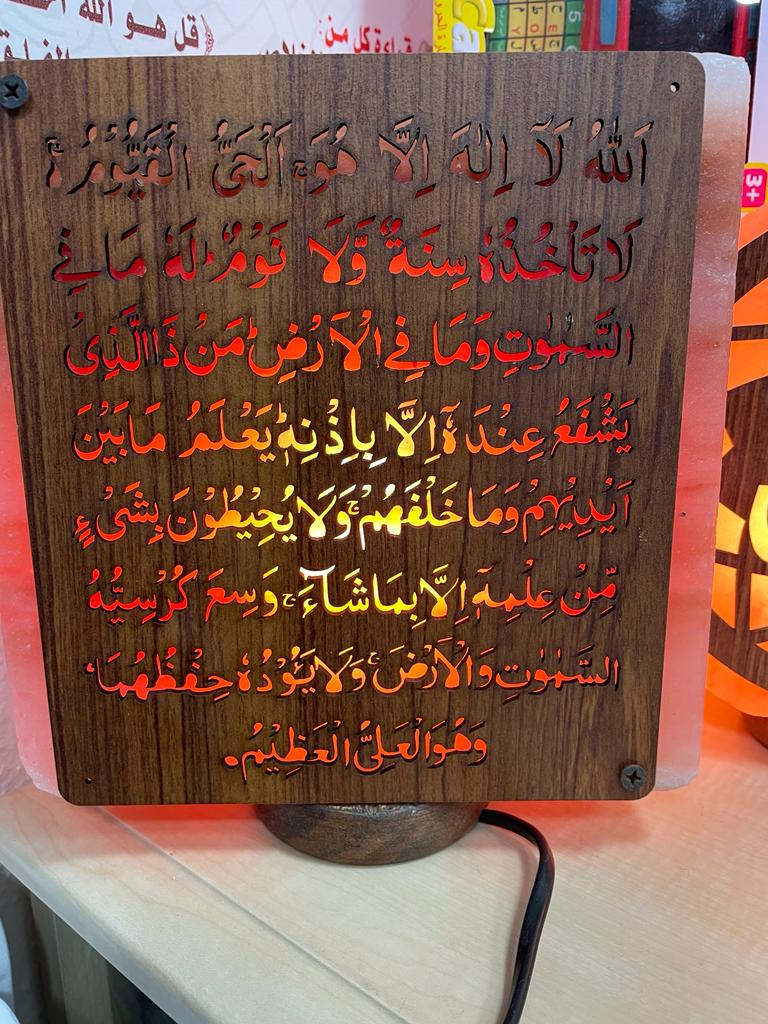 قل هو الله
قراءة كل من:
3+
اَللّٰهُ لَآ اِلٰهَ اِلَّا هُوَۚ اَلْحَیُّ الْقَيُّوْمُ ۚ
لَا تَاْخُذُهٗ سِنَةٌ وَّلَا نَوْمٌؕ لَهٗ مَا فِی
السَّمٰوٰتِ وَمَا فِی الْاَرْضِؕ مَنْ ذَا الَّذِیْ
يَشْفَعُ عِنْدَهٗٓ اِلَّا بِاِذْنِهٖؕ يَعْلَمُ مَا بَيْنَ
اَيْدِيْهِمْ وَمَا خَلْفَهُمْۚ وَلَا يُحِيْطُوْنَ بِشَیْءٍ
مِّنْ عِلْمِهٖٓ اِلَّا بِمَا شَآءَۚ وَسِعَ كُرْسِيُّهُ
السَّمٰوٰتِ وَالْاَرْضَۚ وَلَا يَـُٔوْدُهٗ حِفْظُهُمَاۚ
وَهُوَ الْعَلِیُّ الْعَظِيْمُ.